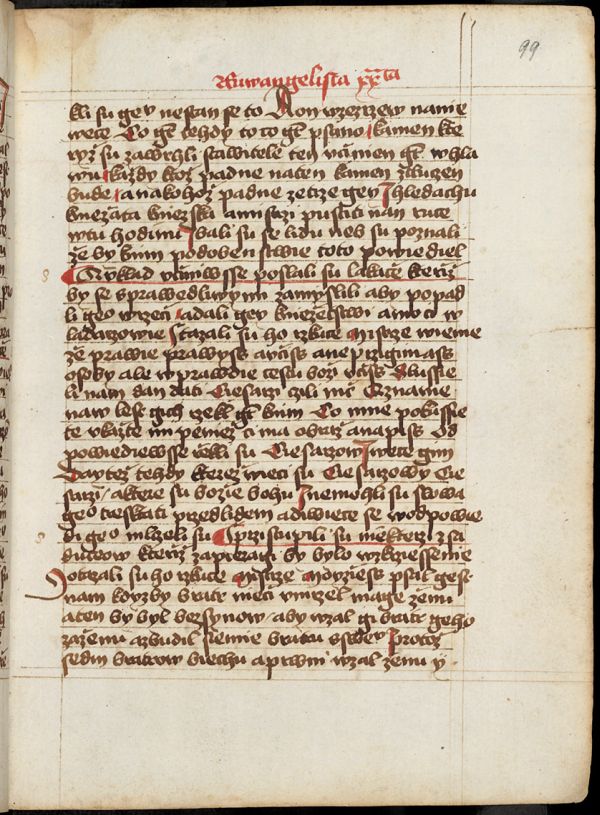 99
Ewangelista xx̃ta
kli su gey nestan se to A on wzezrzew na nie
wece Co gt̃ tehdy to to gt̃ psano kamen kte
ryz su zawrhli stawitele ten kamen gt̃ w hla
wu každy ktož padne na ten kamen zbuzen
bude a na kohož padne zetrze gey I hledachu
kniezata kniezska a mistrzi pustiti nan ruce
w tu hodinu I bali su se lidu neb su poznali
že by k nim podobenstwie toto powiediel
Przyklad uciniwsse poslali su lakáče kteriz
by se sprawedliwymi zamyslili aby popad
li geo w rzeci a dali gey kniežetstwi a moci w
ladarzowie Otazali su ho rzkuce Mistrze wieme
že prawie prawyss a uciss a ne przigimass
osoby ale w prawdie cestu boži uciss Slussie
li nam dan dati Ciesarzi czili nic Oznamie
naw lest gich rzekl gt̃ k nim Co mne pokussie
te ukažte mi peniez ci ma obraz a napis Od
powiediewsse rzkli su Ciesarzow I wece gim
Dayte ž tehdy kterež wieci su Ciesarzowy Cie
sarzi a ktere su bozie bohu I nemohli su slowa
geo treskati przed lidem a diwiece se w odpowie
di geo mlczeli su Przistupili su niekterzi z sa
duceow kterziz zapieragi by bylo wzkrziessenie
Otazali su ho rzkuce Mistrze Moyziess psal gest
nam kdyzby bratr nieci umrzel mage ženu
a ten by byl bez synow aby wzal gi bratr geho
za ženu a zbudil siemie bratru swey Protož
sedm bratrow biechu a prwni wzal ženu y